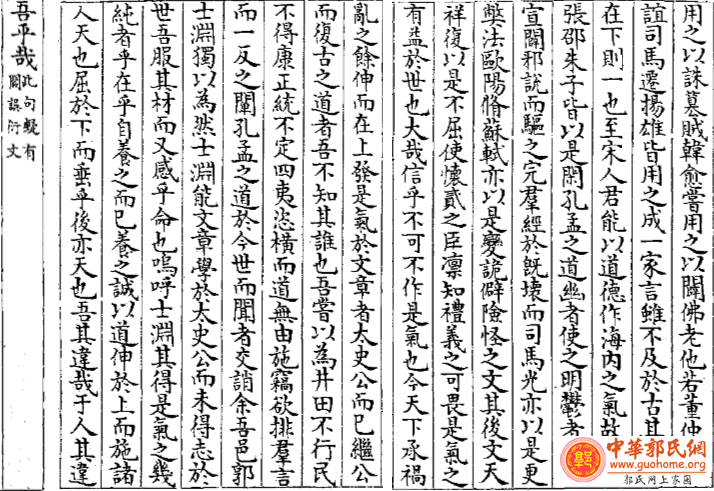 用之以誅墓賊韓愈嘗用之以闢佛老他若董仲
誼司馬遷揚雄皆用之成一家言雖不及於古其
在下則一也至宋人君能以道德作海內之氣故
張邵朱子皆以是閑孔孟之道幽者使之明鬱者
宣闢邪說而驅之完羣經於既壞而司馬光亦以是更
獘法歐陽脩蘇軾亦以是變詭僻險怪之文其後文天
祥復以是不屈使懷貳之臣凛知禮義之可畏是氣之
有益於世也大哉信乎不可不作是氣也今天下承禍
亂之餘伸而在上發是氣於文章者太史公而已繼公
而復古之道者吾不知其誰也吾嘗以為井田不行民
不得康正統不定四夷恣橫而道無由施竊欲排羣言
而一反之闡孔孟之道於今世而聞者交誚余吾邑郭
士淵獨以為然士淵能文章學於太史公而未得志於
世吾服其材而又感乎命也嗚呼士淵其得是氣之幾
純者乎在乎自養之而已養之誠以道伸於上而施諸
人天也屈於下而垂乎後亦天也吾其違哉于人其違
吾乎哉此句疑有
闕誤衍文
中華郭氏網
www.guohome.org
郭氏网上家园